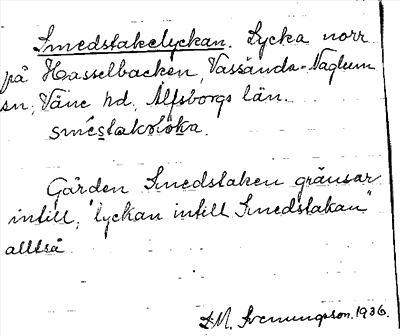 Smedstakelyckan. Lycka norr
på Hasselbacken, Vassända-Naglum
sn, Väne hd, Älfsborgs län.
Gården Smedstaken gränsar
intill, "lyckan intill Smedstakan"
alltså
L.M. Svenungsson. 1936.